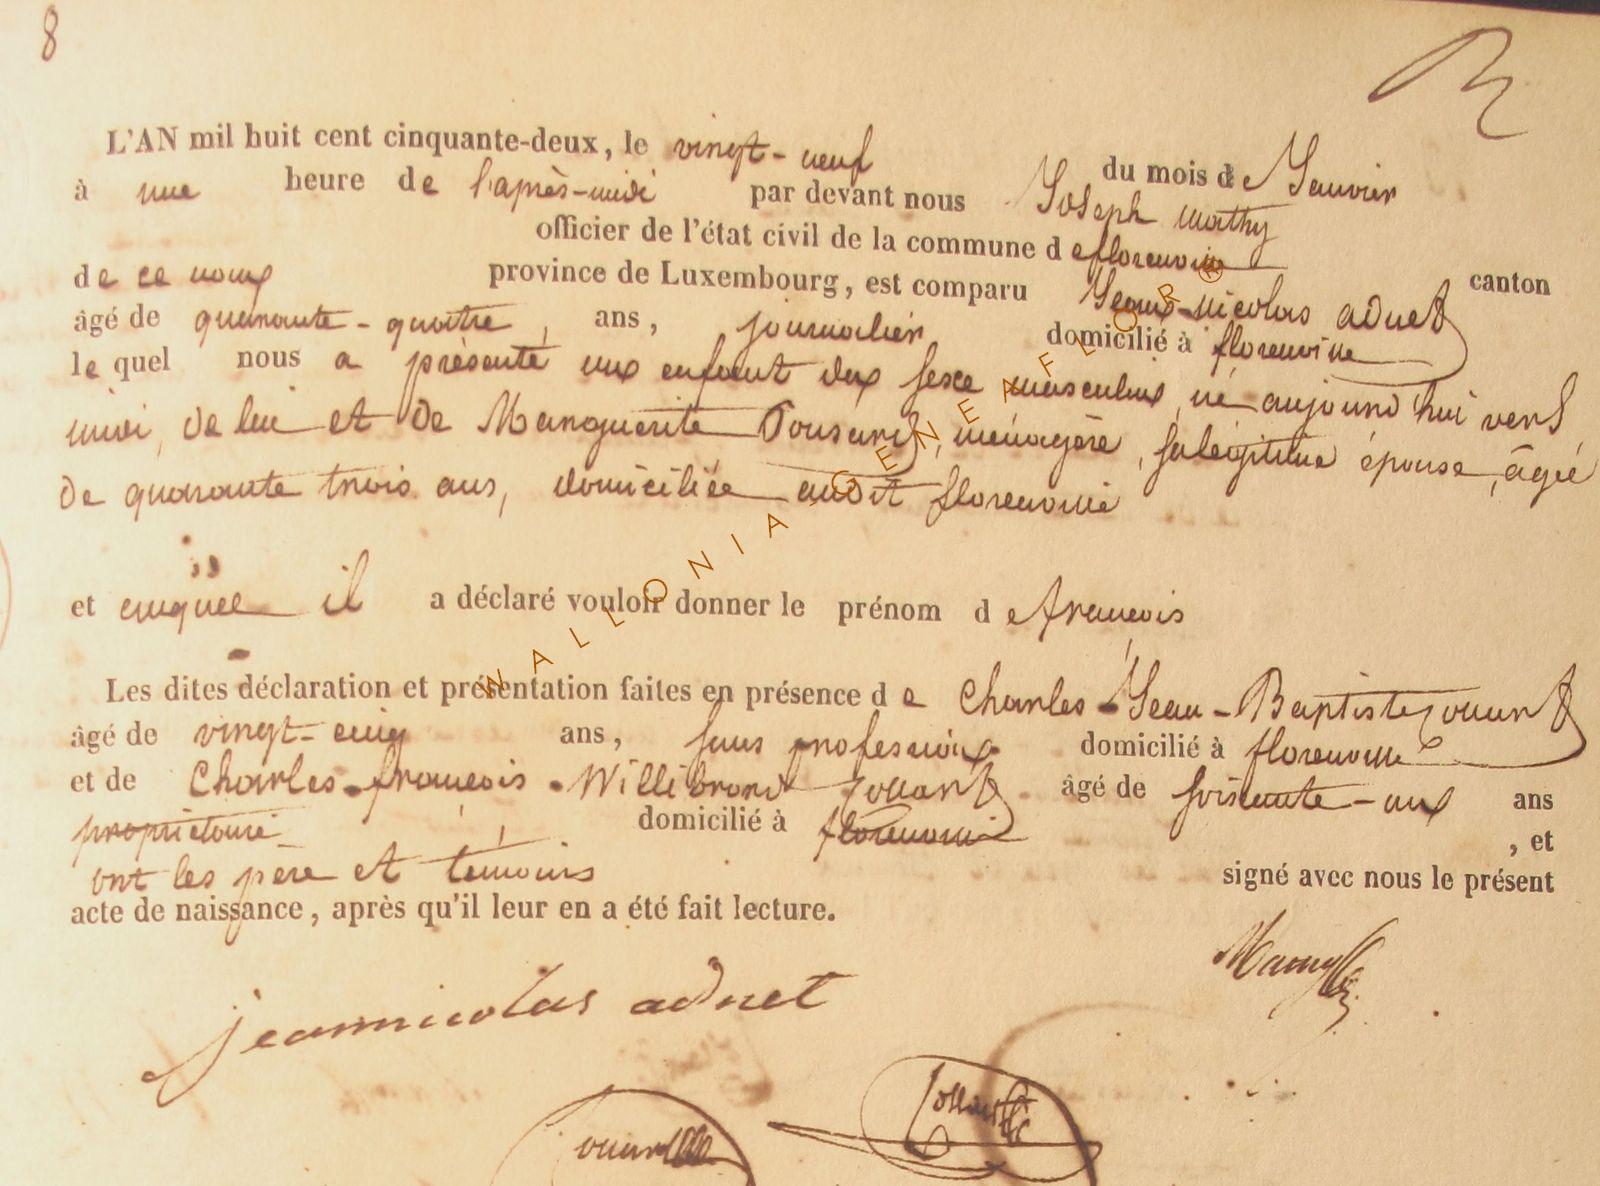 8
L'AN mil huit cent cinquante-deux, le vingt-neuf du mois de Janvier
à une heure de l'après-midi par devant nous Joseph mathy
officier de l'état civil de la commune de florenville canton
de ce nom province de Luxembourg, est comparu Jean-nicolas adnet
âgé de quarante-quatre, ans, journalier domicilié à florenville
le quel nous a présenté un enfant du sexe masculin, né aujourd'hui vers
midi, de lui et de Marguerite Pousard, ménagère, sa légitime épouse, âgée
de quarante trois ans, domiciliée audit florenville
et auquel il a déclaré vouloir donner le prénom de françois
Les dites déclaration et présentation faites en présence de Charles-Jean-Baptiste
âgé de vingt-cinq ans, sans profession domicilié à florenville
et de Charles-françois-Willibrord âgé de soixante-un ans
propriétaire, domicilié à florenville, et
ont les père et témoins signé avec nous le présent
acte de naissance, après qu'il leur en a été fait lecture.
jeannicolas adnet
WALLONIA-GENEAFLOR®